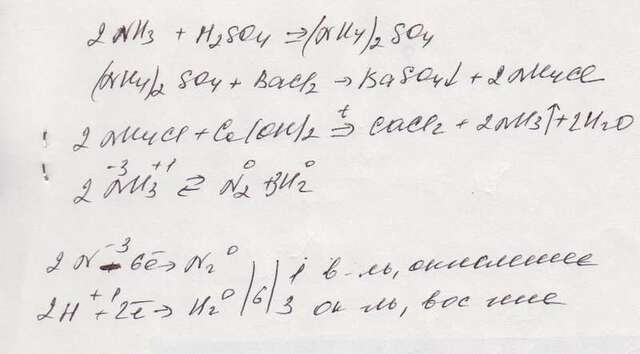 2NH3 + H2SO4 ⇒ (NH4)2SO4
(NH4)2SO4 + BaCl2 → BaSO4↓ + 2NH4Cl
! 2NH4Cl + Ca(OH)2 =t⇒ CaCl2 + 2NH3↑ + 2H2O
! 2N⁻³H3⁺¹ ⇄ N2⁰ + 3H2⁰
2N⁻³ - 6ē → N2⁰ | | 1 в-ль, окисление
2H⁺¹ + 2ē → H2⁰ | 6 | 3 ок-ль, вос-ние